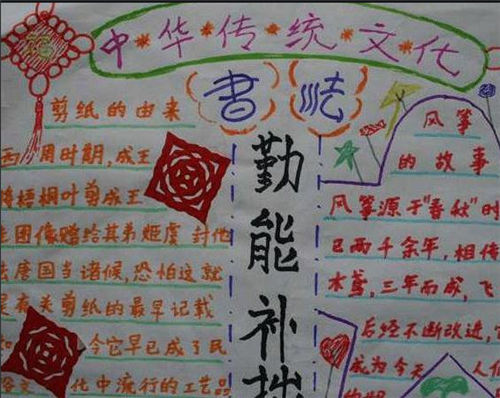 中华传统文化
书法
剪纸的由来
西周时期,成王
将梧桐叶剪成王
圭图像赠给其弟姬虞 封他
唐国当诸候,恐怕这就
是有关剪纸的最早记载
今它早已成了民
化中流行的工艺品
勤能补拙
风筝
的故事
风筝源于"春秋"时
已两千余年,相传
木鸢,三年而成,飞
后经不断改进,
成为今天 人们